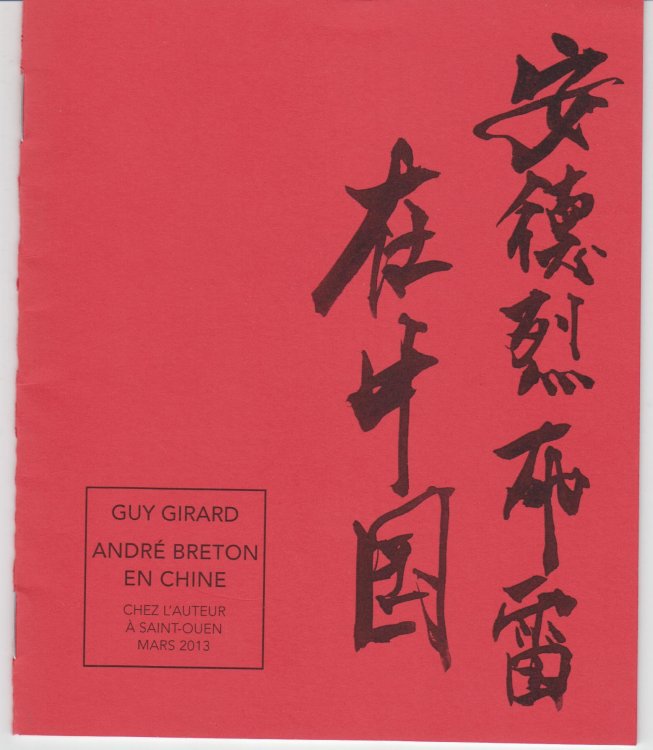 安德烈布雷
在中国
GUY GIRARD
ANDRÉ BRETON
EN CHINE
CHEZ L'AUTEUR
À SAINT-OUEN
MARS 2013